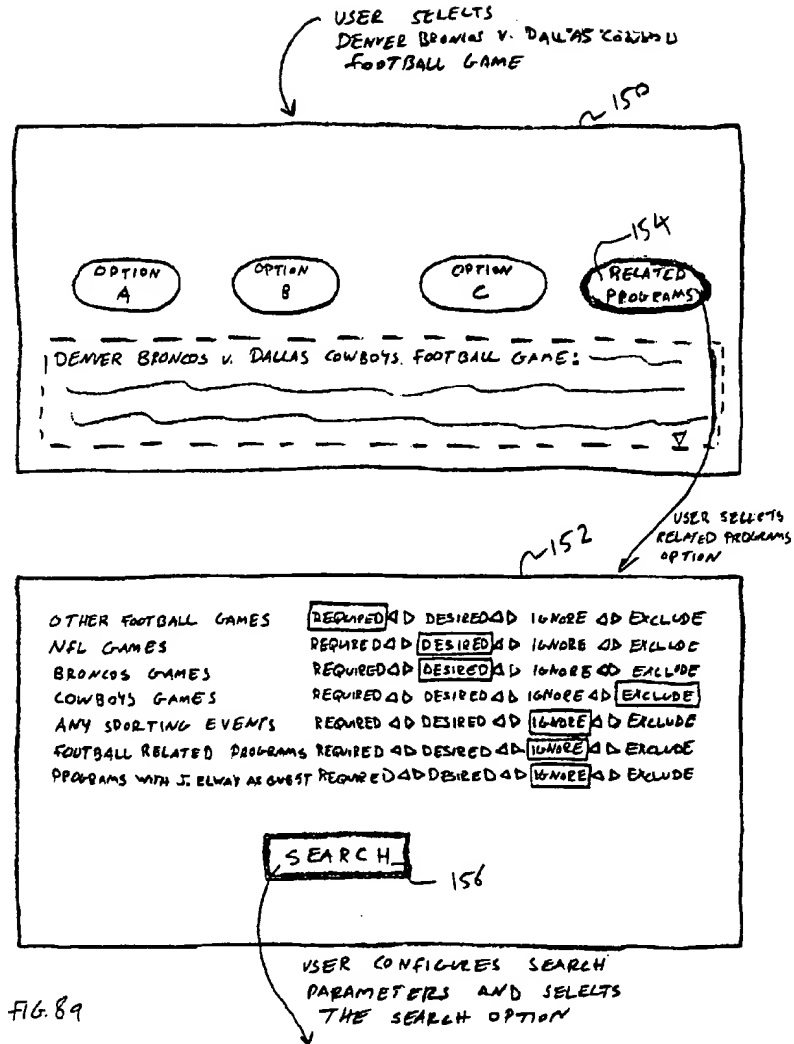 USER SELECTS
DENVER BRONCOS V. DALLAS COWBOYS
FOOTBALL GAME
150
154
OPTION
A
OPTION
B
OPTION
C
RELATED
PROGRAMS
DENVER BRONCOS V. DALLAS COWBOYS FOOTBALL GAME:
USER SELECTS
RELATED PROGRAMS
OPTION
152
OTHER FOOTBALL GAMES REQUIRED DESIRED IGNORE EXCLUDE
NFL GAMES REQUIRED DESIRED IGNORE EXCLUDE
BRONCOS GAMES REQUIRED DESIRED IGNORE EXCLUDE
COWBOYS GAMES REQUIRED DESIRED IGNORE EXCLUDE
ANY SPORTING EVENTS REQUIRED DESIRED IGNORE EXCLUDE
FOOTBALL RELATED PROGRAMS REQUIRED DESIRED IGNORE EXCLUDE
PROGRAMS WITH J. ELWAY AS GUEST REQUIRED DESIRED IGNORE EXCLUDE
SEARCH
156
USER CONFIGURES SEARCH
PARAMETERS AND SELECTS
THE SEARCH OPTION
FIG. 8a